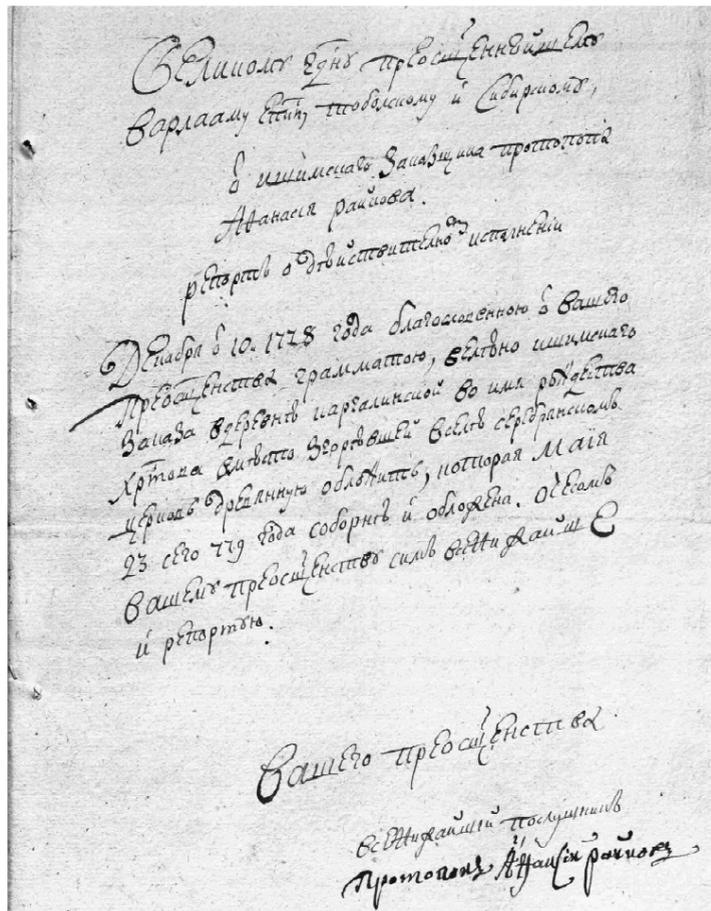 Великому Гдну преосщеннейшему
Варлааму епгпу тоболскому и Сибирскому,
ѿ ишимскаго Закащика протопопа
Аѳанасия райкова.
репортъ о дѣйствителном исполнении
Декабря ѿ 10. 1728 года благословенною ѿ вашего
Преосщенства грамматою, велѣно ишимскаго
Заказа вдеревнѣ каргалинской во имя рождества
Хртова вмѣсто Згорѣвшей вселѣ серебрянском
церковь древянную обложить, которая Маїя
23 сего 729 года соборнѣ и обложена. О чесомъ
Вашему преосщенству симъ всенижайше
и репортую.
Вашего преосщенства
всенижайший послушникъ
Протопопъ Аѳанасій райковъ